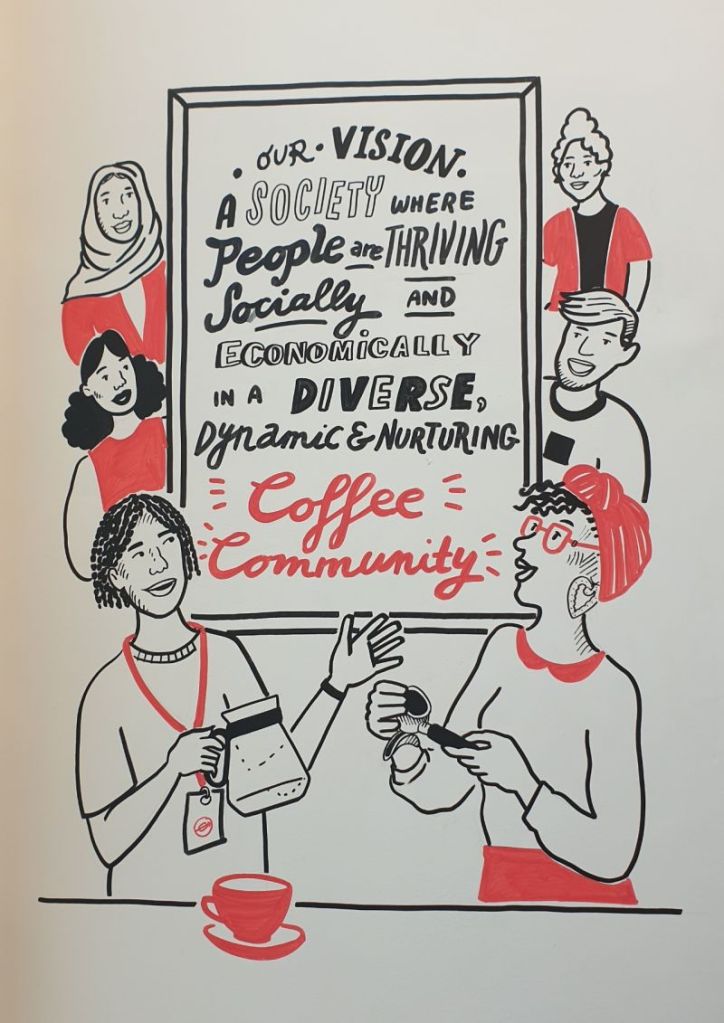 . OUR . VISION.
A SOCIETY WHERE
People are THRIVING
Socially AND
ECONOMICALLY
IN A DIVERSE,
Dynamic & NURTURING
Coffee
Community